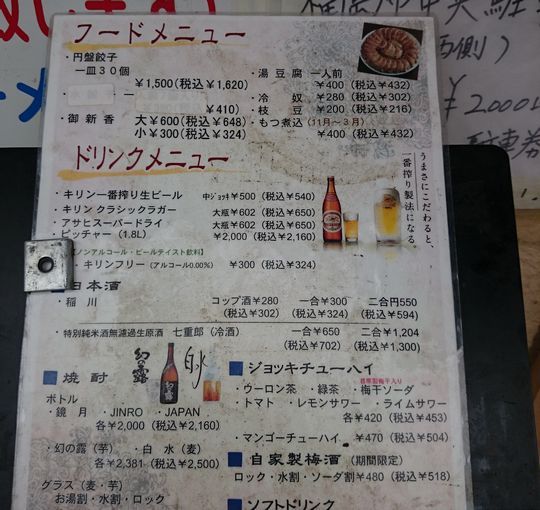 フードメニュー
・円盤餃子
一皿３０個
￥1,500(税込￥1,620)
￥410)
・御新香 大￥600(税込￥648)
小￥300(税込￥324)
・湯豆腐 一人前
￥400(税込￥432)
・冷奴 ￥280(税込￥302)
・枝豆 ￥200(税込￥216)
・もつ煮込(11月～3月)
￥400(税込￥432)
ドリンクメニュー
・キリン一番搾り生ビール 中ジョッキ￥500(税込￥540)
・キリン クラシックラガー 大瓶￥602(税込￥650)
・アサヒスーパードライ 大瓶￥602(税込￥650)
・ピッチャー(1.8L) ￥2,000(税込￥2,160)
【ノンアルコール・ビールテイスト飲料】
・キリンフリー(アルコール0.00%) ￥300(税込￥324)
うまさにこだわると、
一番搾り製法になる。
■日本酒
・稲川 コップ酒￥280 一合￥300 二合円550
(税込￥302) (税込￥324) (税込￥594)
・特別純米酒無濾過生原酒 七重郎(冷酒) 一合￥650 二合￥1,204
(税込￥702) (税込￥1,300)
■焼酎
幻の露
白水
ボトル
・鏡月 ・JINRO ・JAPAN
各￥2,000(税込￥2,160)
・幻の露(芋) ・白水(麦)
各￥2,381(税込￥2,500)
グラス(麦・芋)
お湯割・水割・ロック
■ジョッキチューハイ
・ウーロン茶 ・緑茶 ・梅干ソーダ
・トマト ・レモンサワー ・ライムサワー
各￥420(税込￥453)
・マンゴーチューハイ ￥470(税込￥504)
■自家製梅酒 (期間限定)
ロック・水割・ソーダ割￥480(税込￥518)
■ソフトドリンク
￥2000
駐車券
側)